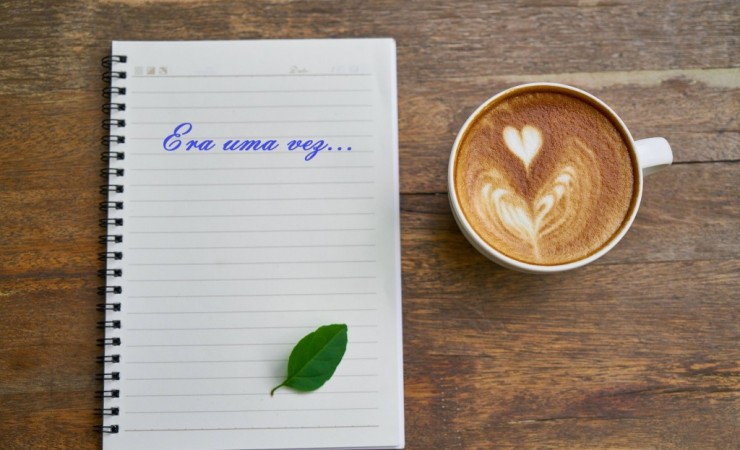 Era uma vez...